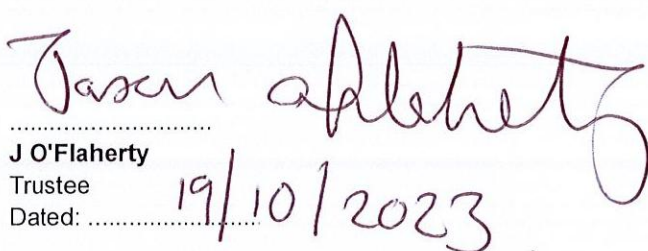 Jason O'Flaherty
....................................
J O'Flaherty
Trustee
Dated: .............................. 19/10/2023